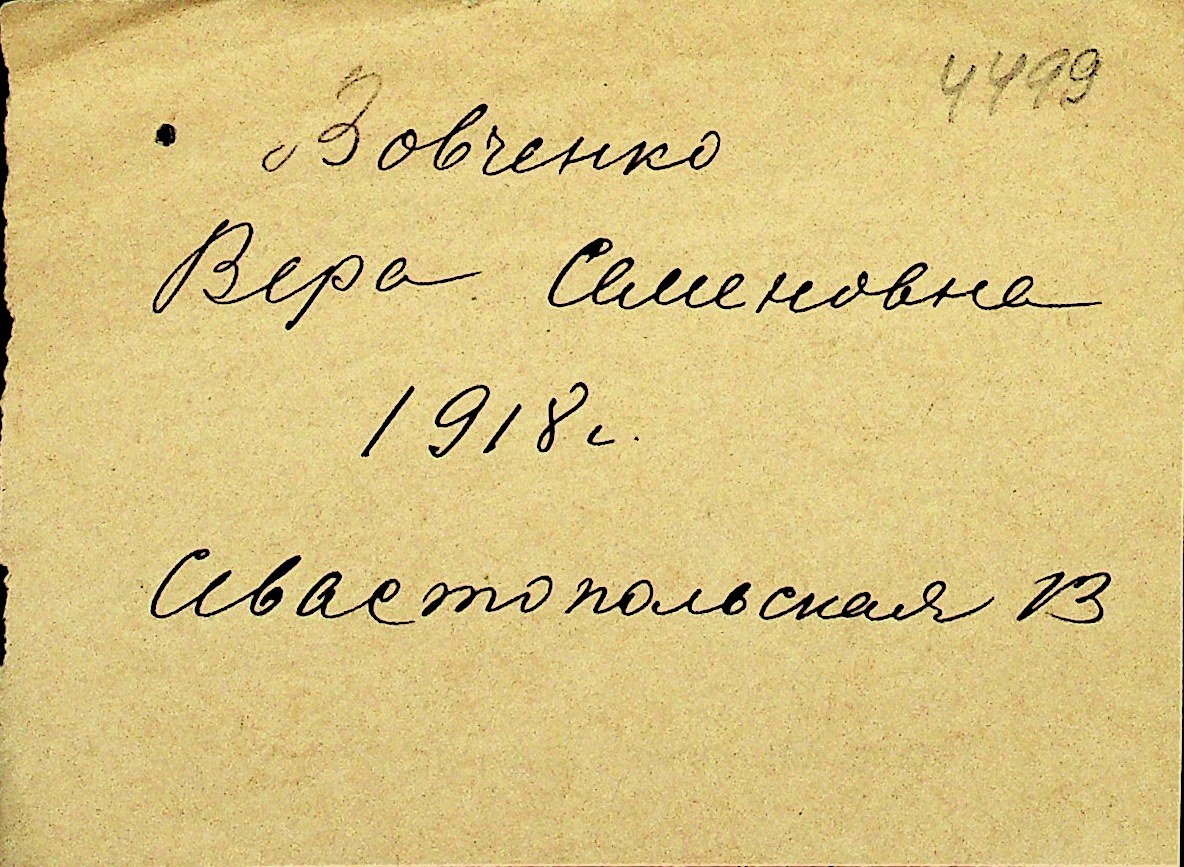 4499
Зовченко
Вера Семеновна
1918г.
Севастопольская 13